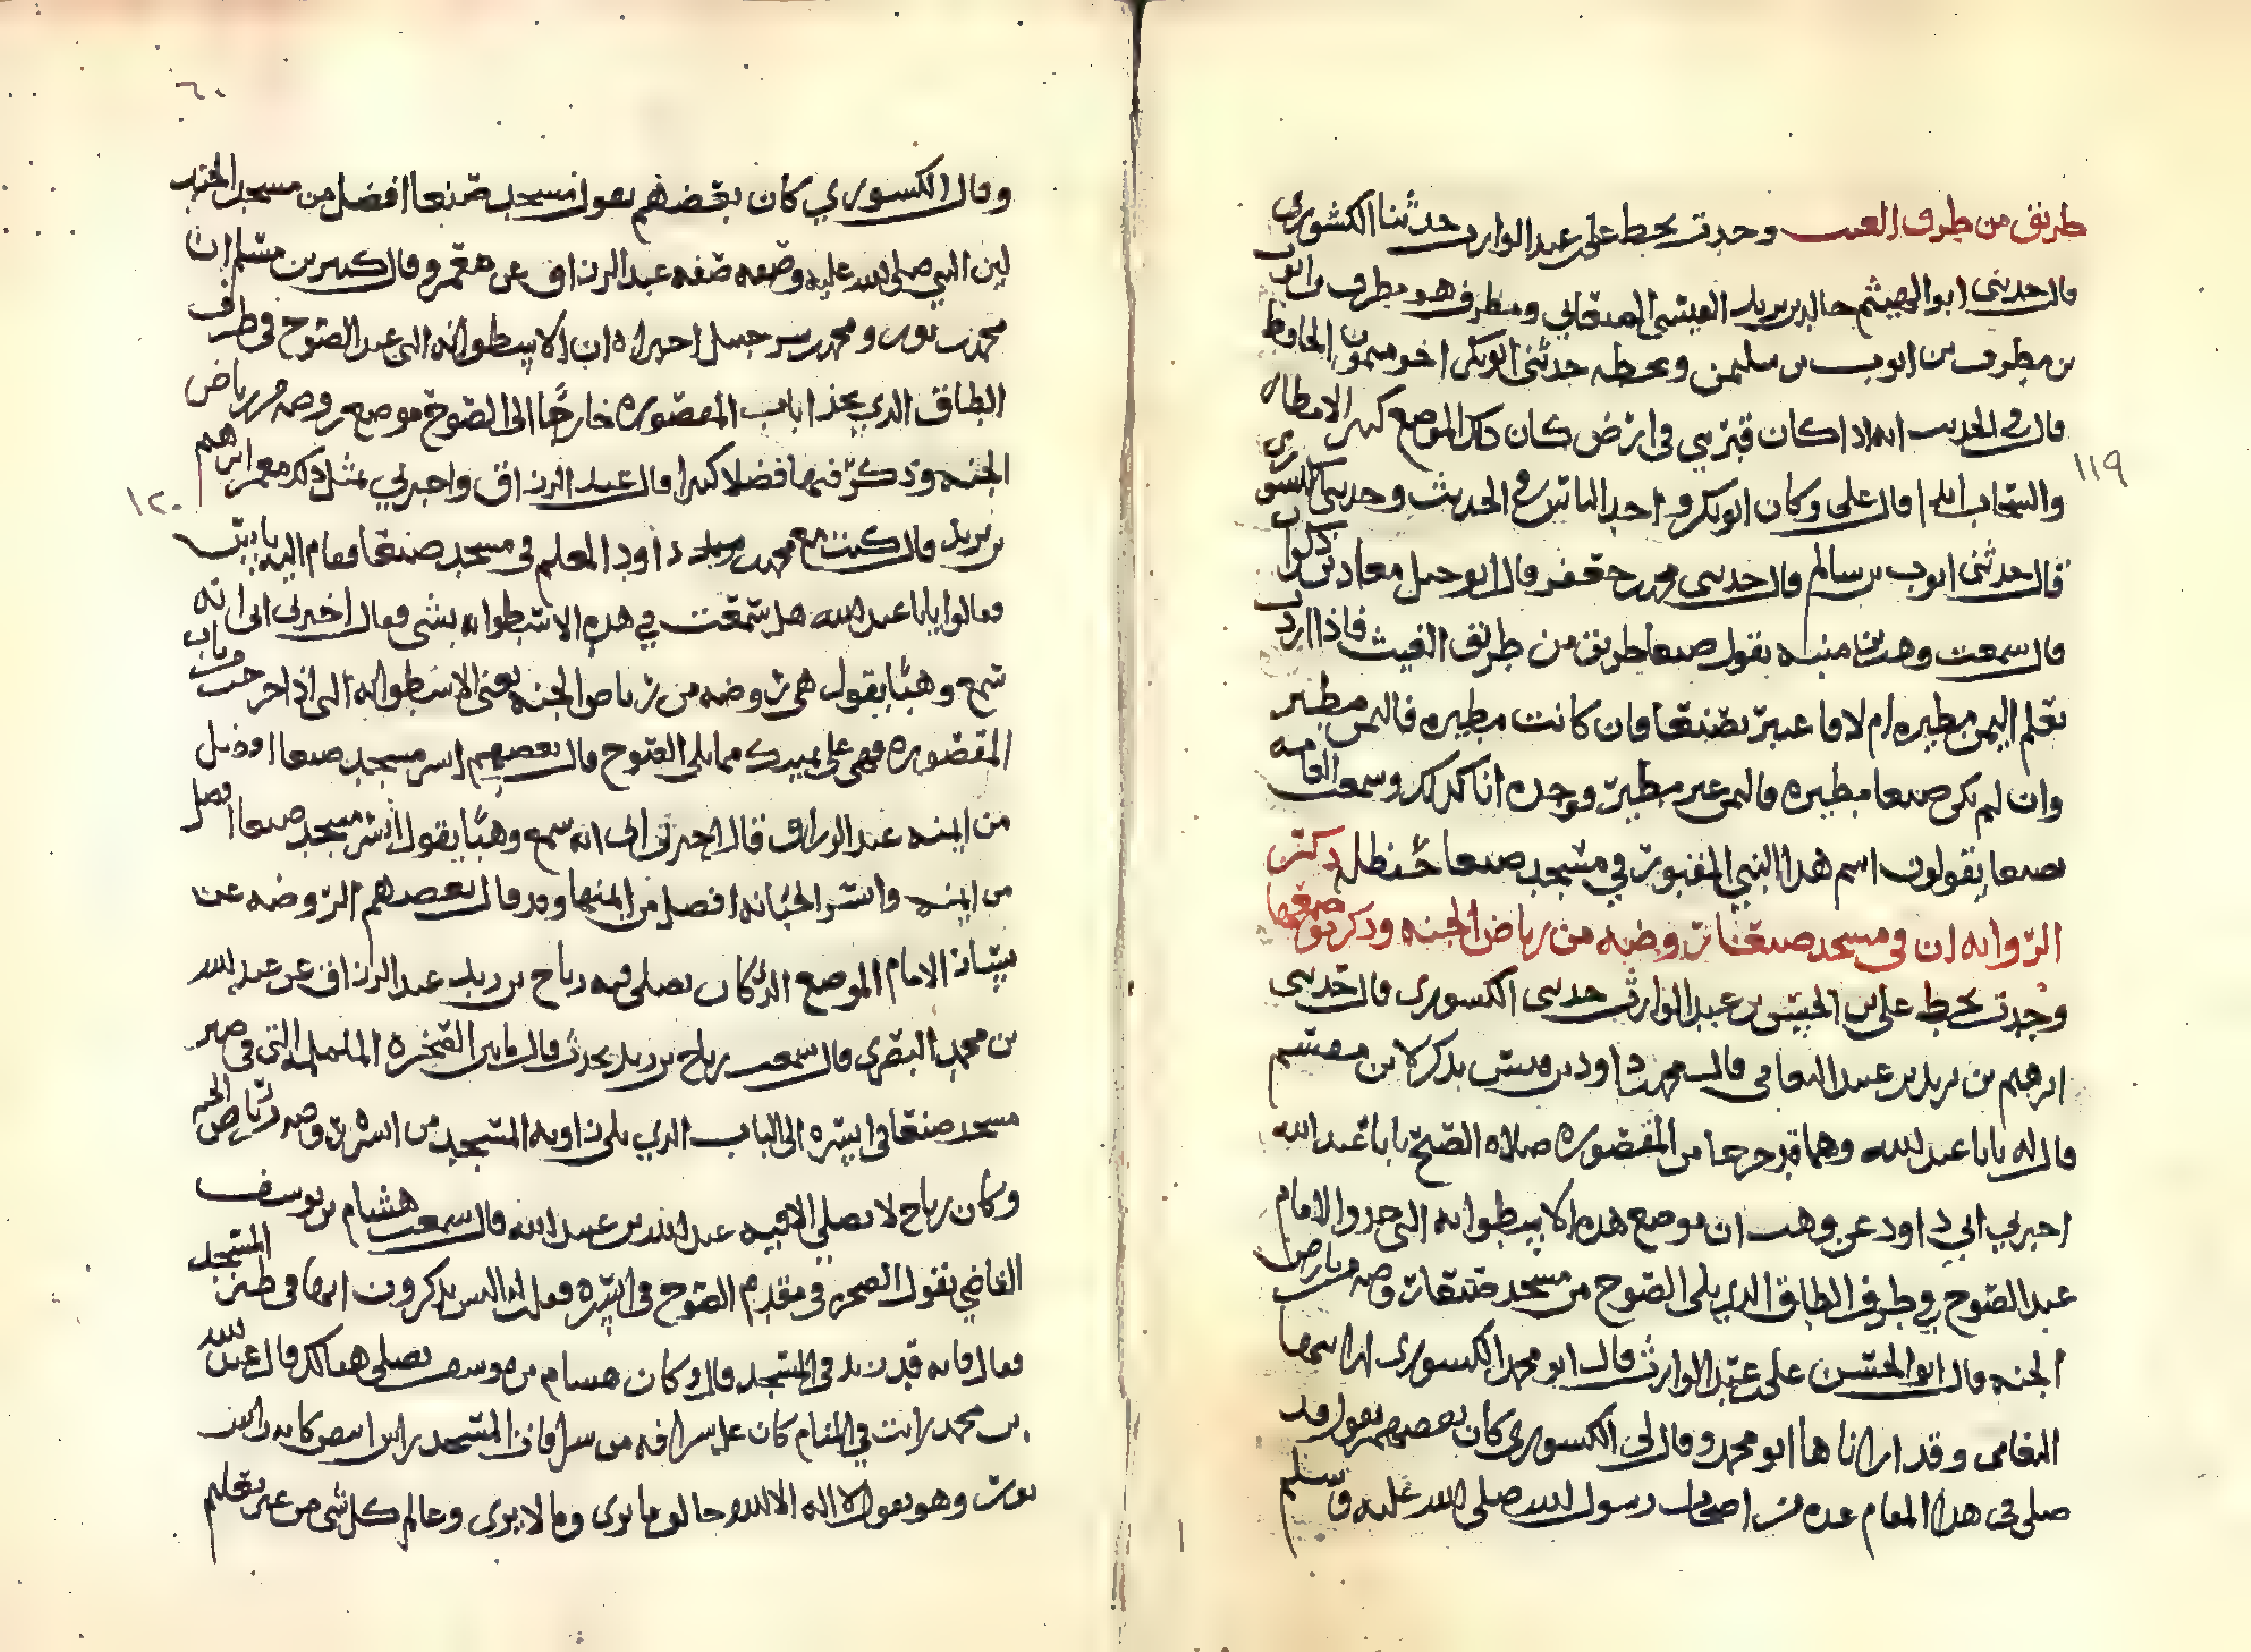 طريق من طرق الغيث وجدت بخط علي بن عبد الوارث حدثنا الكشوري
قال حدثني ابو الهيثم خالد بن بريد العيشي الصنعاني ومطرف هو مطرف بن ايوب
بن مطرف بن ايوب بن سليمن وبخطه حدثني ابو بكر اخو ميمون الحافظ
قال في الحديث انه اذا كان قبر نبي في ارض كان ذلك الموضع كثير الامطار
والسحاب قال علي وكان ابو بكر احد الناس في الحديث وحدثني الكشوري
قال حدثني ايوب بن سالم قال حدثني محمد بن جعفر قال ابو حمل معاد بن
قال سمعت وهب بن منبه يقول صنعا طريق من طريق الغيث فاذا اردت
تعلم اليمن مطيره ام لا فاعتبر بصنعا فان كانت مطيره فاليمن مطير
وان لم تكن صنعا مطيره فاليمن غير مطير ووجده انا كذلك وسمعت العامه
بصنعا يقولون اسم هذا النبي المقبور في مسجد صنعا حنظله ذكر
الروايه ان في مسجد صنعا روضه من رياض الجنه وذكر موضعها
وجدت بخط علي بن الحسن بن عبد الوارث حدثني الكشوري قال حدثني
ابرهيم بن بريد بن عبد الله قال محمد بن داود بن قيس يذكر لابن معشم
قال له يابا عبد الله وهما قد خرجا من المقصوره صلاه الصبح يابا عبد الله
اخبرني ابي داود عن وهب ان موضع هذه الاسطوانه التي حدو الامام
عند الضوح في طرف الطاق الذي يلي الضوح من مسجد صنعا روضه من رياض
الجنه قال ابو الحسن علي بن عبد الوارث قال ابو محمد الكشوري ارانيها
وقد ارانا ها ابو محمد وقال لي الكشوري كان بعضهم يقول قد
صلى في هذا المقام عده من اصحاب رسول الله صلى الله عليه وسلم
١١٩
٦٠
وقال الكشوري كان بعضهم يقول مسجد صنعا افضل من مسجد الجند
لان النبي صلى الله عليه وضعه صفه عبد الرزاق عن معمر وقال كثير بن مسلم ان
محمد بن ثور ومحمد بن شرحبيل اخبراه ان الاسطوانه التي عند الضوح في طرف
الطاق الذي بحذا باب المقصوره خارجا الى الضوح موضع روضه من رياض
الجنه وذكر فيها فضلا كبيرا قال عبد الرزاق واخبرني بمثل ذلك معمر ابرهيم
بن بريد قال كنت مع محمد بن داود المعلم في مسجد صنعا فقام اليه
فقالوا يابا عبد الله هل سمعت في هذه الاسطوانه بشي فقال اخبرني ابي انه
سمع وهبا يقول هي روضه من رياض الجنه يعني الاسطوانه التي اذا خرجت من باب
المقصوره فهي على يمينك مما يلي الضوح قال بعضهم ايسر مسجد صنعا افضل
من ايمنه عبد الرزاق قال اخبرني ابي انه سمع وهبا يقول ايسر مسجد صنعا افضل
من ايمنه وايسر الجبانه افضل من ايمنها وقد قال بعضهم الروضه عن
يسار الامام الموضع الذي كان يصلي فيه رباح بن زيد عبد الرزاق عن عبد الله
بن محمد البصري قال سمعت رباح بن زيد يحدث قال ما بين الصخره الململمه التي في صبر
مسجد صنعا في ايسره الى الباب الذي يلي زاويه المسجد من ايسره روضه من رياض الجنه
وكان رباح لا يصلي الا فيه عبد الله بن عبد الله قال سمعت هشام بن يوسف
القاضي يقول الصخره في مقدم الضوح في ايسره فقلت له اليس يذكرون انها في طرف المسجد
فقال فانه قد زيد في المسجد قال وكان هشام بن يوسف يصلي هنالك قال عبد الله
بن محمد رايت في المنام كان على شرافه من شرافات المسجد راس ابيض كانه راس
ثور وهو يقول لا اله الا الله خالق ما يرى وما لا يرى وعالم كل شي من غير تعليم
١٢٠